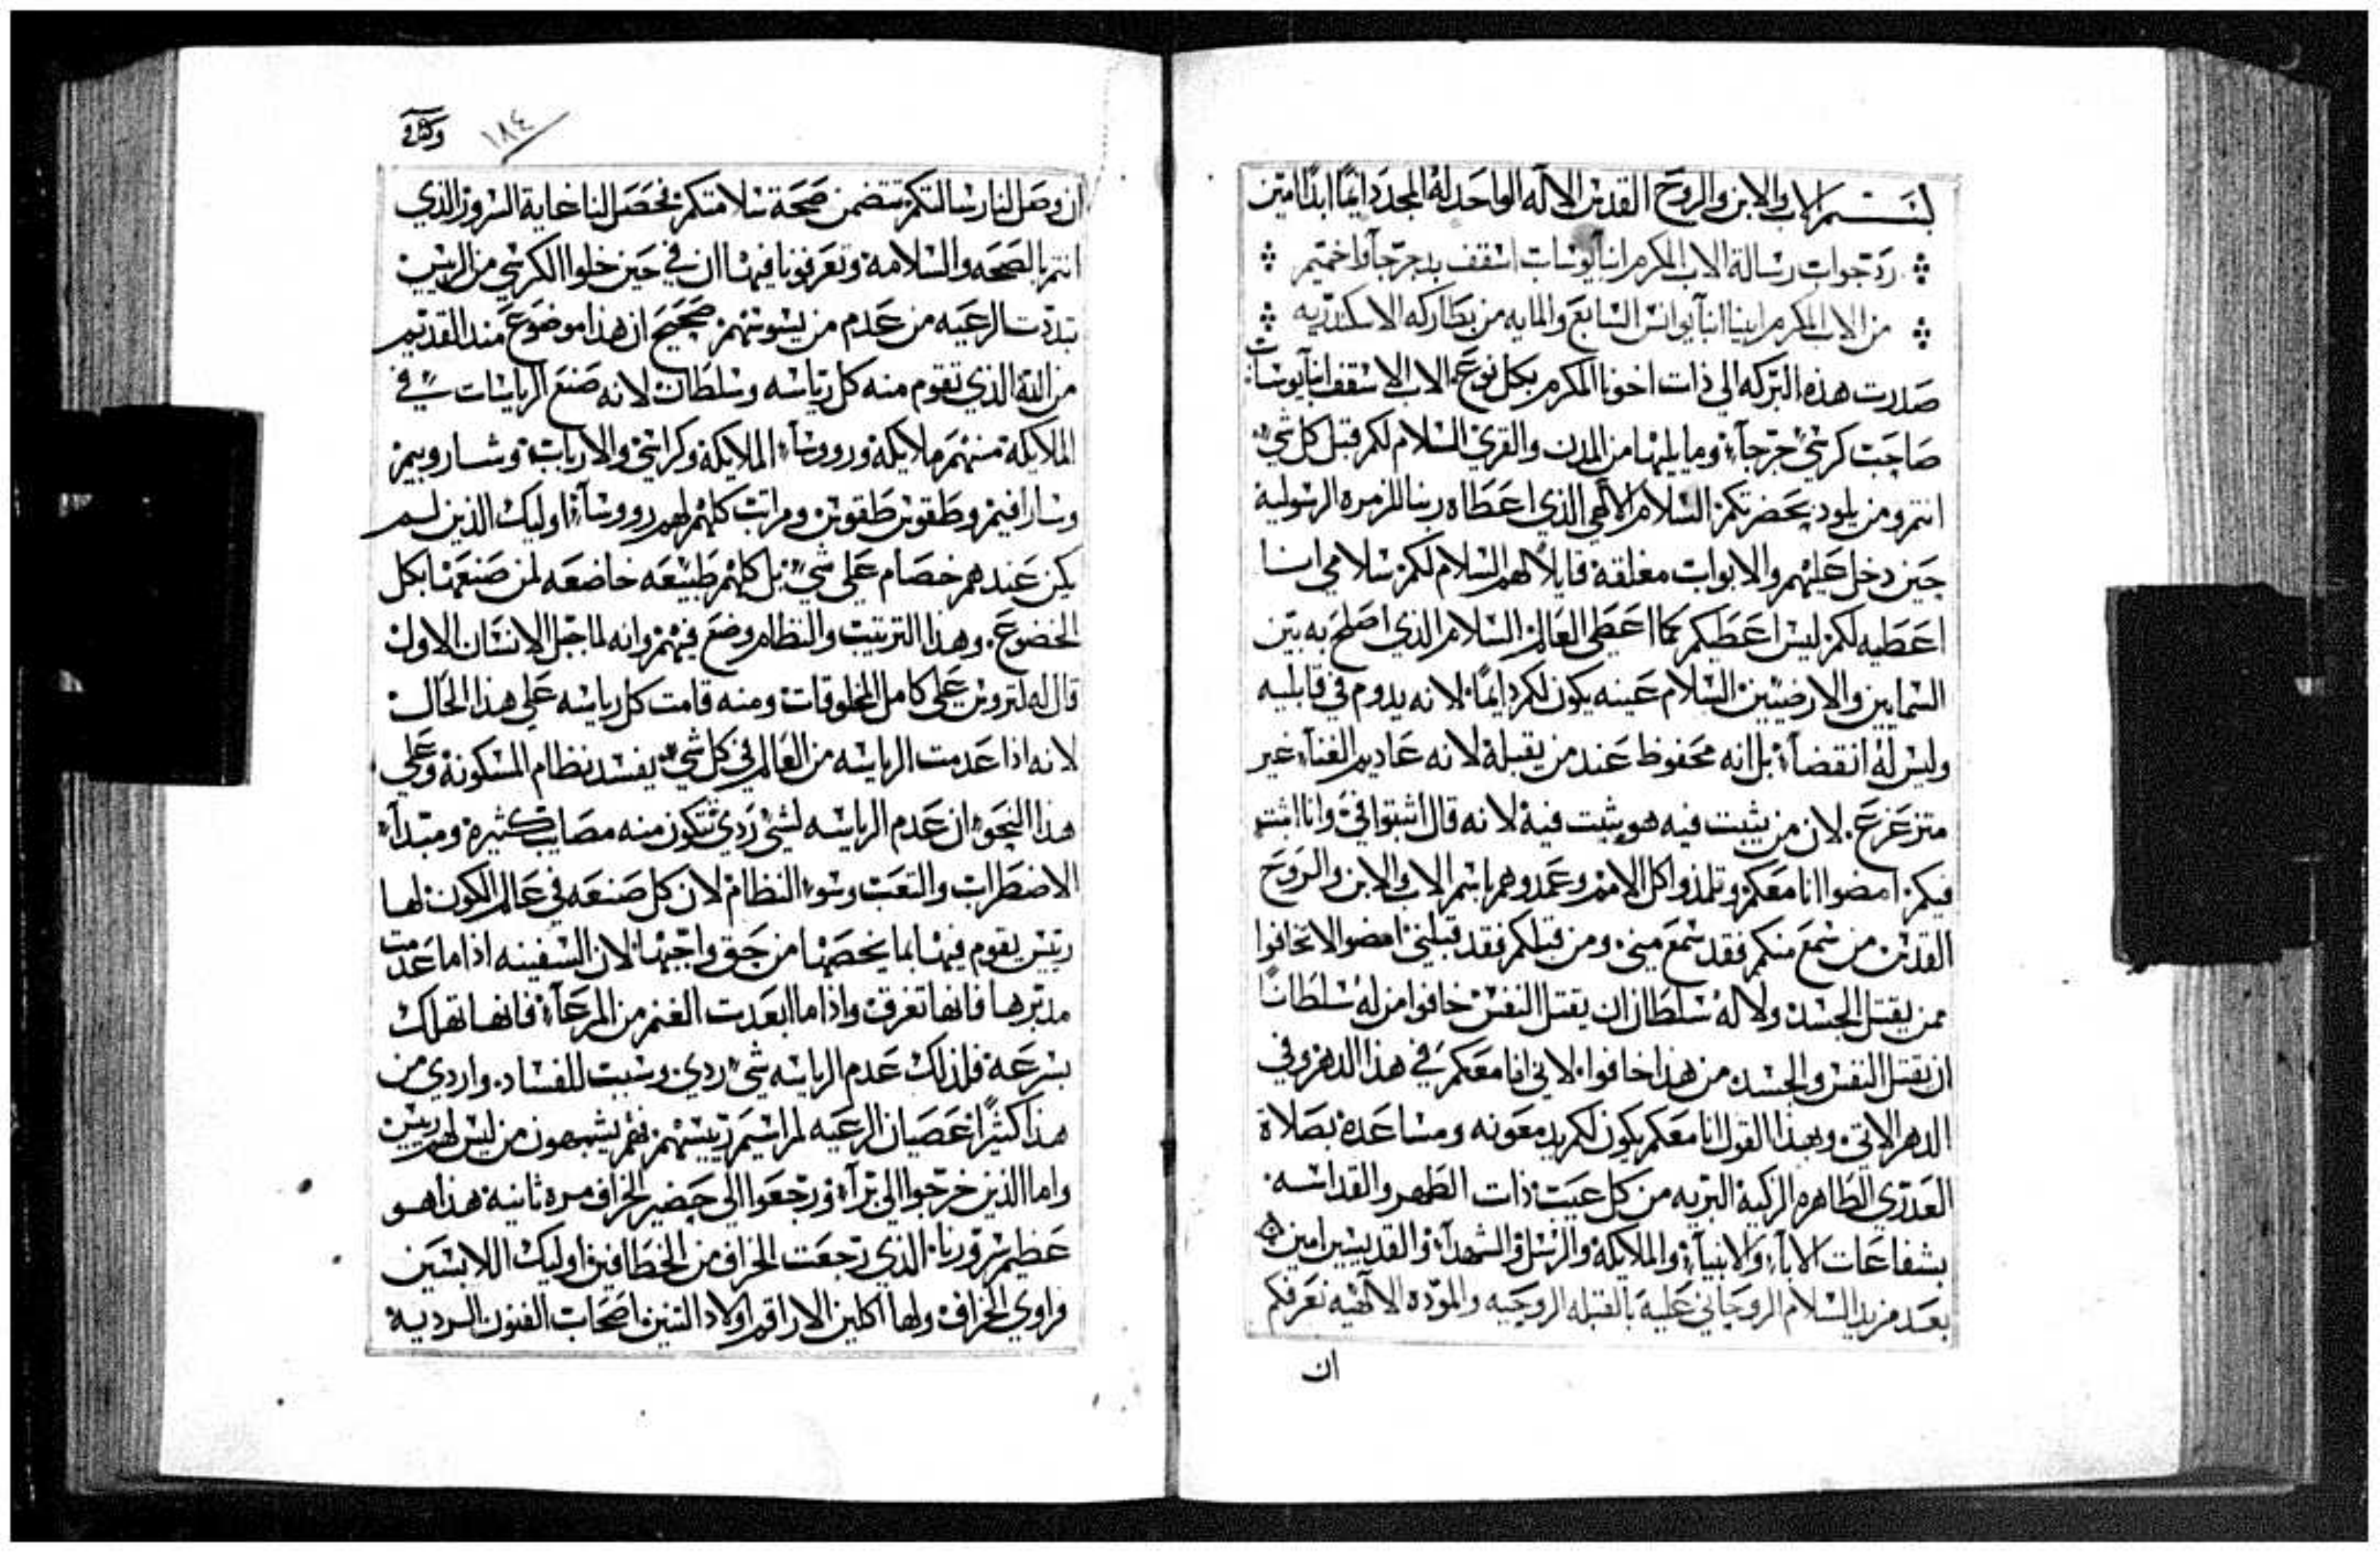 بسم الاب والابن والروح القدس الاله الواحد له المجد دايمًا ابدًا امين
رد جواب رسالة الاب المكرم انبا يوساب اسقف بد جرجا واخميم
من الاب المكرم ابينا انبا يوانس السابع والمايه من بطاركه الاسكندريه
صدرت هذه البركه الي ذات اخونا المكرم بكل نوع الاب الاسقف انبا يوساب
صاحب كرسي جرجا وما يليها من المدن والقري السلام لكم قبل كل شي
انتم ومن يلود بحضرتكم السلام الالهي الذي اعطاه ربنا للزمره الرسوليه
حين دخل عليهم والابواب مغلقه قايلاً لهم السلام لكم سلامي انا
اعطيه لكم ليس اعطيكم كما اعطي العالم السلام الذي اصلح به بين
السمايين والارضيين السلام عينه يكون لكم دايمًا لانه يدوم في قابليه
وليس له انقضاء بل انه محفوظ عند من يقبله لانه عاديم الفناء غير
متزعزع. لان من يثبت فيه هو يثبت فيه لانه قال اثبتوا في وانا اثبت
فيكم امضوا انا معكم وتلمذوا كل الامم وعمدوهم باسم الاب والابن والروح
القدس من سمع منكم فقد سمع مني ومن قبلكم فقد قبلني امضوا لا تخافوا
ممن يقتل الجسد ولا له سلطان ان يقتل النفس خافوا من له سلطانًا
ان يقتل النفس والجسد من هذا خافوا لاني انا معكم في هذا الدهر وفي
الدهر الاتي وبهذا القول انا معكم يكون لكم يد معونه ومساعده بصلاة
العدري الطاهره الزكيه البريه من كل عيب ذات الطهر والقداسه.
بشفاعات الاباء والانبياء والملايكه والرسل والشهداء والقديسين امين
بعد مزيد السلام الروحاني عليه بالقبله الروحيه والموده الالهيه نعرفكم
ان
١٨٤
ان وصل لنا رسالتكم تتضمن صحة سلامتكم فحصل لنا غاية السرور الذي
انتم بالصحه والسلامه وتعرفونا فيها ان في حين خلوا الكرسي من الرييس
تبددت الرعيه من عدم من يسوسهم صحيح ان هذا موضوع مند القديم
من الله الذي تقوم منه كل رياسه وسلطان لانه صنع الرياسات في
الملايكة منهم ملايكة وروسآء الملايكة وكراسي والارباب وشاروبيم
وسارافيم وطقوس طقوس ومراتب كلهم لهم روسآء اوليك الذين لم
يكن عندهم خصام علي شي بل كلهم طبيعه خاضعه لمن صنعها بكل
الخضوع. وهذا الترتيب والنظام وضع فيهم وانه لما جبل الانسان الاول
قال له لتروس علي كامل المخلوقات ومنه قامت كل رياسه علي هذا الحال
لانه اذا عدمت الرياسه من العالم في كل شي يفسد نظام المسكونة وعلي
هذا النحو ان عدم الرياسه لشي ردي تتكون منه مصايب كثيره ومبدآء
الاضطراب والتعب وسوء النظام لان كل صنعه في عالم الكون لها
رييس يقوم فيها بما يخصها من حق واجبها لان السفينه اذا ما عدمت
مدبرها فانها تغرق واذا ما ابعدت الغنم من المرعآء فانها تهلك
بسرعه فلذلك عدم الرياسه شي ردي وسبب للفساد. واردي من
هذا كثيرًا عصيان الرعيه لمراسيم رييسهم فهم يشبهون من ليس لهم رييس
واما الذين خرجوا الي برآء ورجعوا الي حضير الخراف مره ثانيه هذا هو
عظيم سرورنا الذي رجعت الخراف من الخطافين اوليك اللابسين
فراوي الخراف ولها اكلين الاراقم اولاد التنين اصحاب الفنون الرديه